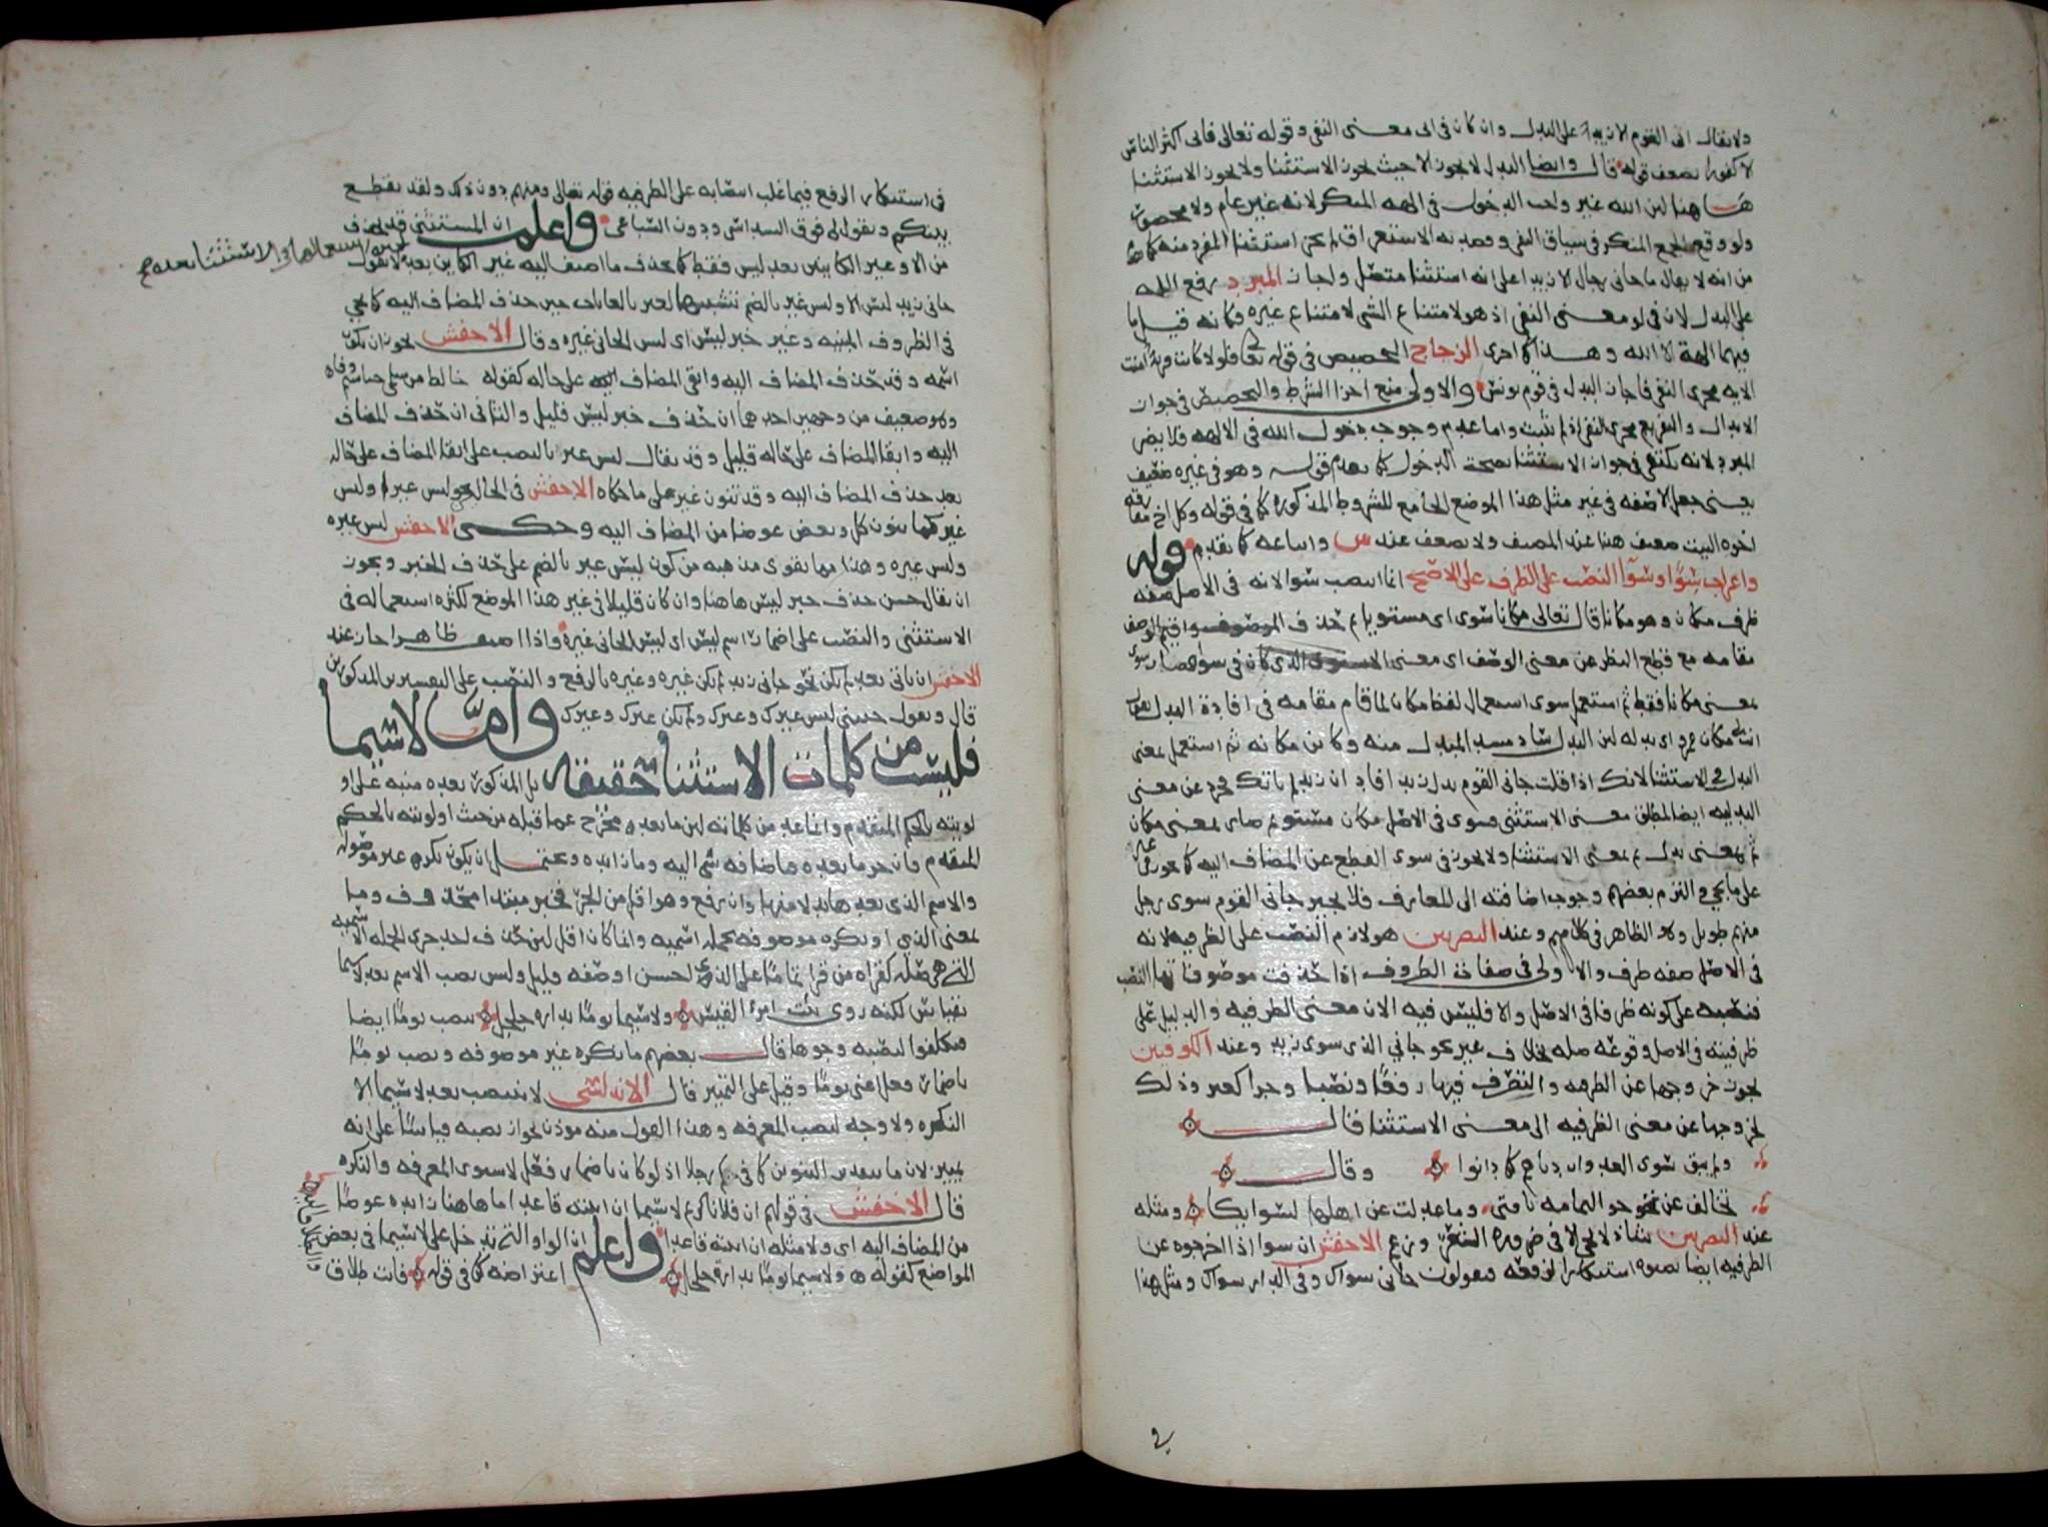 ولا يقال اتى القوم الا زيد على البدل وان كان فى ابى معنى النفى وقوله تعالى فابى اكثر الناس
الا كفورا يضعف قوله قال وايضا البدل لا يجوز الا حيث يجوز الاستثنا ولا يجوز الاستثنا
هاهنا لان الله غير واجب الدخول فى الهه المنكر لانه غير عام ولا محصور
ولو وقع الجمع المنكر فى سياق النفى وقصد به الاستغراق لم يجز استثنا المفرد منه
من انه لا يقال ما جانى رجال الا زيدا على انه استثنا متصل واجاز المبرد رفع الله
على البدل لان فى لو معنى النفى اذ هو لامتناع الشى لامتناع غيره فكانه قيل ما
فيهما الهة الا الله وهذا كما اجرى الزجاج التحضيض فى قوله تعا فلولا كانت قرية امنت
الايه مجرى النفى فاجاز البدل فى قوم يونس والاولى منع اجرا الشرط والتحضيض فى جواز
الابدال والتفريع مجرى النفى اذ لم يثبت واما عدم وجوب دخول الله فى الالهه فلا يضر
المبرد لانه يكتفى فى جواز الاستثنا بصحة الدخول كما تقدم قوله وهو فى غيره ضعيف
يعنى جعل الا صفه فى غير مثل هذا الموضع الجامع للشروط المذكورة كما فى قوله وكل اخ مفارقه
اخوه البيت ضعيف هنا عند المصنف ولا يضعف عند س واتباعه كما تقدم قوله
واعراب سوى وسوا النصب على الظرف على الاصح انما انتصب سوا لانه فى الاصل صفه
ظرف مكان وهو مكانا قال تعالى مكانا سوى اى مستويا ثم حذف الموصوف واقيم الوصف
مقامه مع قطع النظر عن معنى الوصف اى معنى الاستوى الذى كان فى سوا فصار سوى
بمعنى مكانا فقط ثم استعمل سوى استعمال لفظ مكان لما قام مقامه فى افادة البدل تقول
انت لى مكان عمرو اى بدله لان البدل ساد مسد المبدل منه وكاين مكانه ثم استعمل بمعنى
البدل فى الاستثنا لانك اذا قلت جانى القوم بدل زيد افاد ان زيدا لم ياتك فجرد عن معنى
البدليه ايضا لمطلق معنى الاستثنى فسوى فى الاصل مكان مستو ثم صار بمعنى مكان
ثم بمعنى بدل ثم بمعنى الاستثنا ولا يجوز فى سوى القطع عن المضاف اليه كما يجوز فى غير
على ما يجى والتزم بعضهم وجوب اضافته الى المعارف فلا يجيز جانى القوم سوى رجل
منهم طويل وهو الظاهر فى كلامهم وعند البصريين هو لازم النصب على الظرفيه لانه
فى الاصل صفه ظرف والاولى فى صفات الظروف اذا حذفت موصوفاتها النصب
فنصبه على كونه ظرفا فى الاصل والا فليس فيه الان معنى الظرفيه والدليل على
ظرفيته فى الاصل وقوعه صله بخلاف غير نحو جاني الذى سوى زيد وعند الكوفيين
يجوز خروجها عن الظرفيه والتصرف فيها رفعا ونصبا وجرا كغير وذلك
لخروجها عن معنى الظرفيه الى معنى الاستثنا قال
ولم يبق سوى العدوان دناهم كما دانوا وقال
تجانف عن جو اليمامه ناقتى وما عدلت عن اهلها لسوايكا ومثله
عند البصريين شاذ لا يجى الا فى ضرورة الشعر وزعم الاخفش ان سوا اذا اخرجوه عن
الظرفيه ايضا نصبوه استنكارا لرفعه فيقولون جانى سواك وفى الدار سواك ومثل هذا
فى استنكار الرفع فيما غلب انتصابه على الظرفيه قوله تعالى ومنهم دون ذلك ولقد تقطع
بينكم وتقول لى فوق السداسى ودون السباعى واعلم ان المستثنى قد يحذف
من الا وغير الكاينين بعد ليس فقط كما يحذف ما اضيف اليه غير الكاين بعد لا تقول
جانى زيد ليس الا وليس غير بالضم تشبيها لغير بالغايات حين حذف المضاف اليه كما يجي
فى الظروف المبنيه وغير خبر ليس اى ليس الجانى غيره وقال الاخفش يجوز ان يكون
اسمه وقد حذف المضاف اليه وابقى المضاف على حاله كقوله خالط من سلمى خياشيم وفا
وهو ضعيف من وجهين احدهما ان حذف خبر ليس قليل والثانى ان حذف المضاف
اليه وابقا المضاف على حاله قليل وقد يقال ليس غير بالنصب على ابقا المضاف على حاله
بعد حذف المضاف اليه وقد تنون غير على ما حكاه الاخفش فى الحالين نحو ليس غيرا وليس
غير كما ينون كل وبعض عوضا من المضاف اليه وحكى الاخفش ليس غيره
وليس غيره وهذا مما يقوى مذهبه من كون ليس غير بالضم على حذف الخبر ويجوز
ان يقال حسن حذف خبر ليس هاهنا وان كان قليلا فى غير هذا الموضع لكثره استعماله فى
الاستثنى والنصب على اضمار اسم ليس اى ليس الجانى غيره واذا اضيف ظاهرا جاز عند
الاخفش ان ياتى بعد لم يكن نحو جانى زيد لم يكن غيره وغيره بالرفع والنصب على التفسيرين المذكورين
قال وتقول جيتنى ليس غيرك وغيرك ولم يكن غيرك وغيرك واما لاسيما
فليست من كلمات الاستثنا حقيقه بل المذكور بعده منبه على او
لويته بالحكم المتقدم وانما عد من كلماته لان ما بعده مخرج عما قبله من حيث اولويته بالحكم
المتقدم فان جر ما بعده فباضافه سى اليه وما زايده ويحتمل ان يكون نكرة غير موصوله
والاسم الذى بعدها بدلا منها وان رفع وهو اقل من الجر فخبر مبتدا محذوف وما
بمعنى الذى او نكره موصوفه بجمله اسميه وانما كان اقل لان حذف احد جزى الجمله الاسميه
التى هى صله كقراه من قرا تماما على الذى احسن او صفه قليل وليس نصب الاسم بعد لاسيما
بقياس لكنه روى بيت امرؤ القيس ولاسيما يوما بدارة جلجل بنصب يوما ايضا
فتكلفوا لنصبه وجوها قال بعضهم ما نكره غير موصوفه ونصب يوما
باضمار فعل اعنى يوما وقيل على التمييز قال الاندلسى لا ينتصب بعد لاسيما الا
النكره ولا وجه لنصب المعرفه وهذا القول منه موذن بجواز نصبه قياسا على انه
تمييز لان ما بتقدير التنوين كما فى كم رجلا اذ لو كان باضمار فعل لاستوى المعرفه والنكره
قال الاخفش فى قولهم ان فلانا كريم لاسيما ان اتيته قاعدا ما هاهنا زايده عوضا
من المضاف اليه اى ولا مثله ان اتيته قاعدا واعلم ان الواو التى تدخل على لاسيما فى بعض
المواضع كقوله ولاسيما يوما بدارة جلجل اعتراضه كما فى قوله فانت طلاق